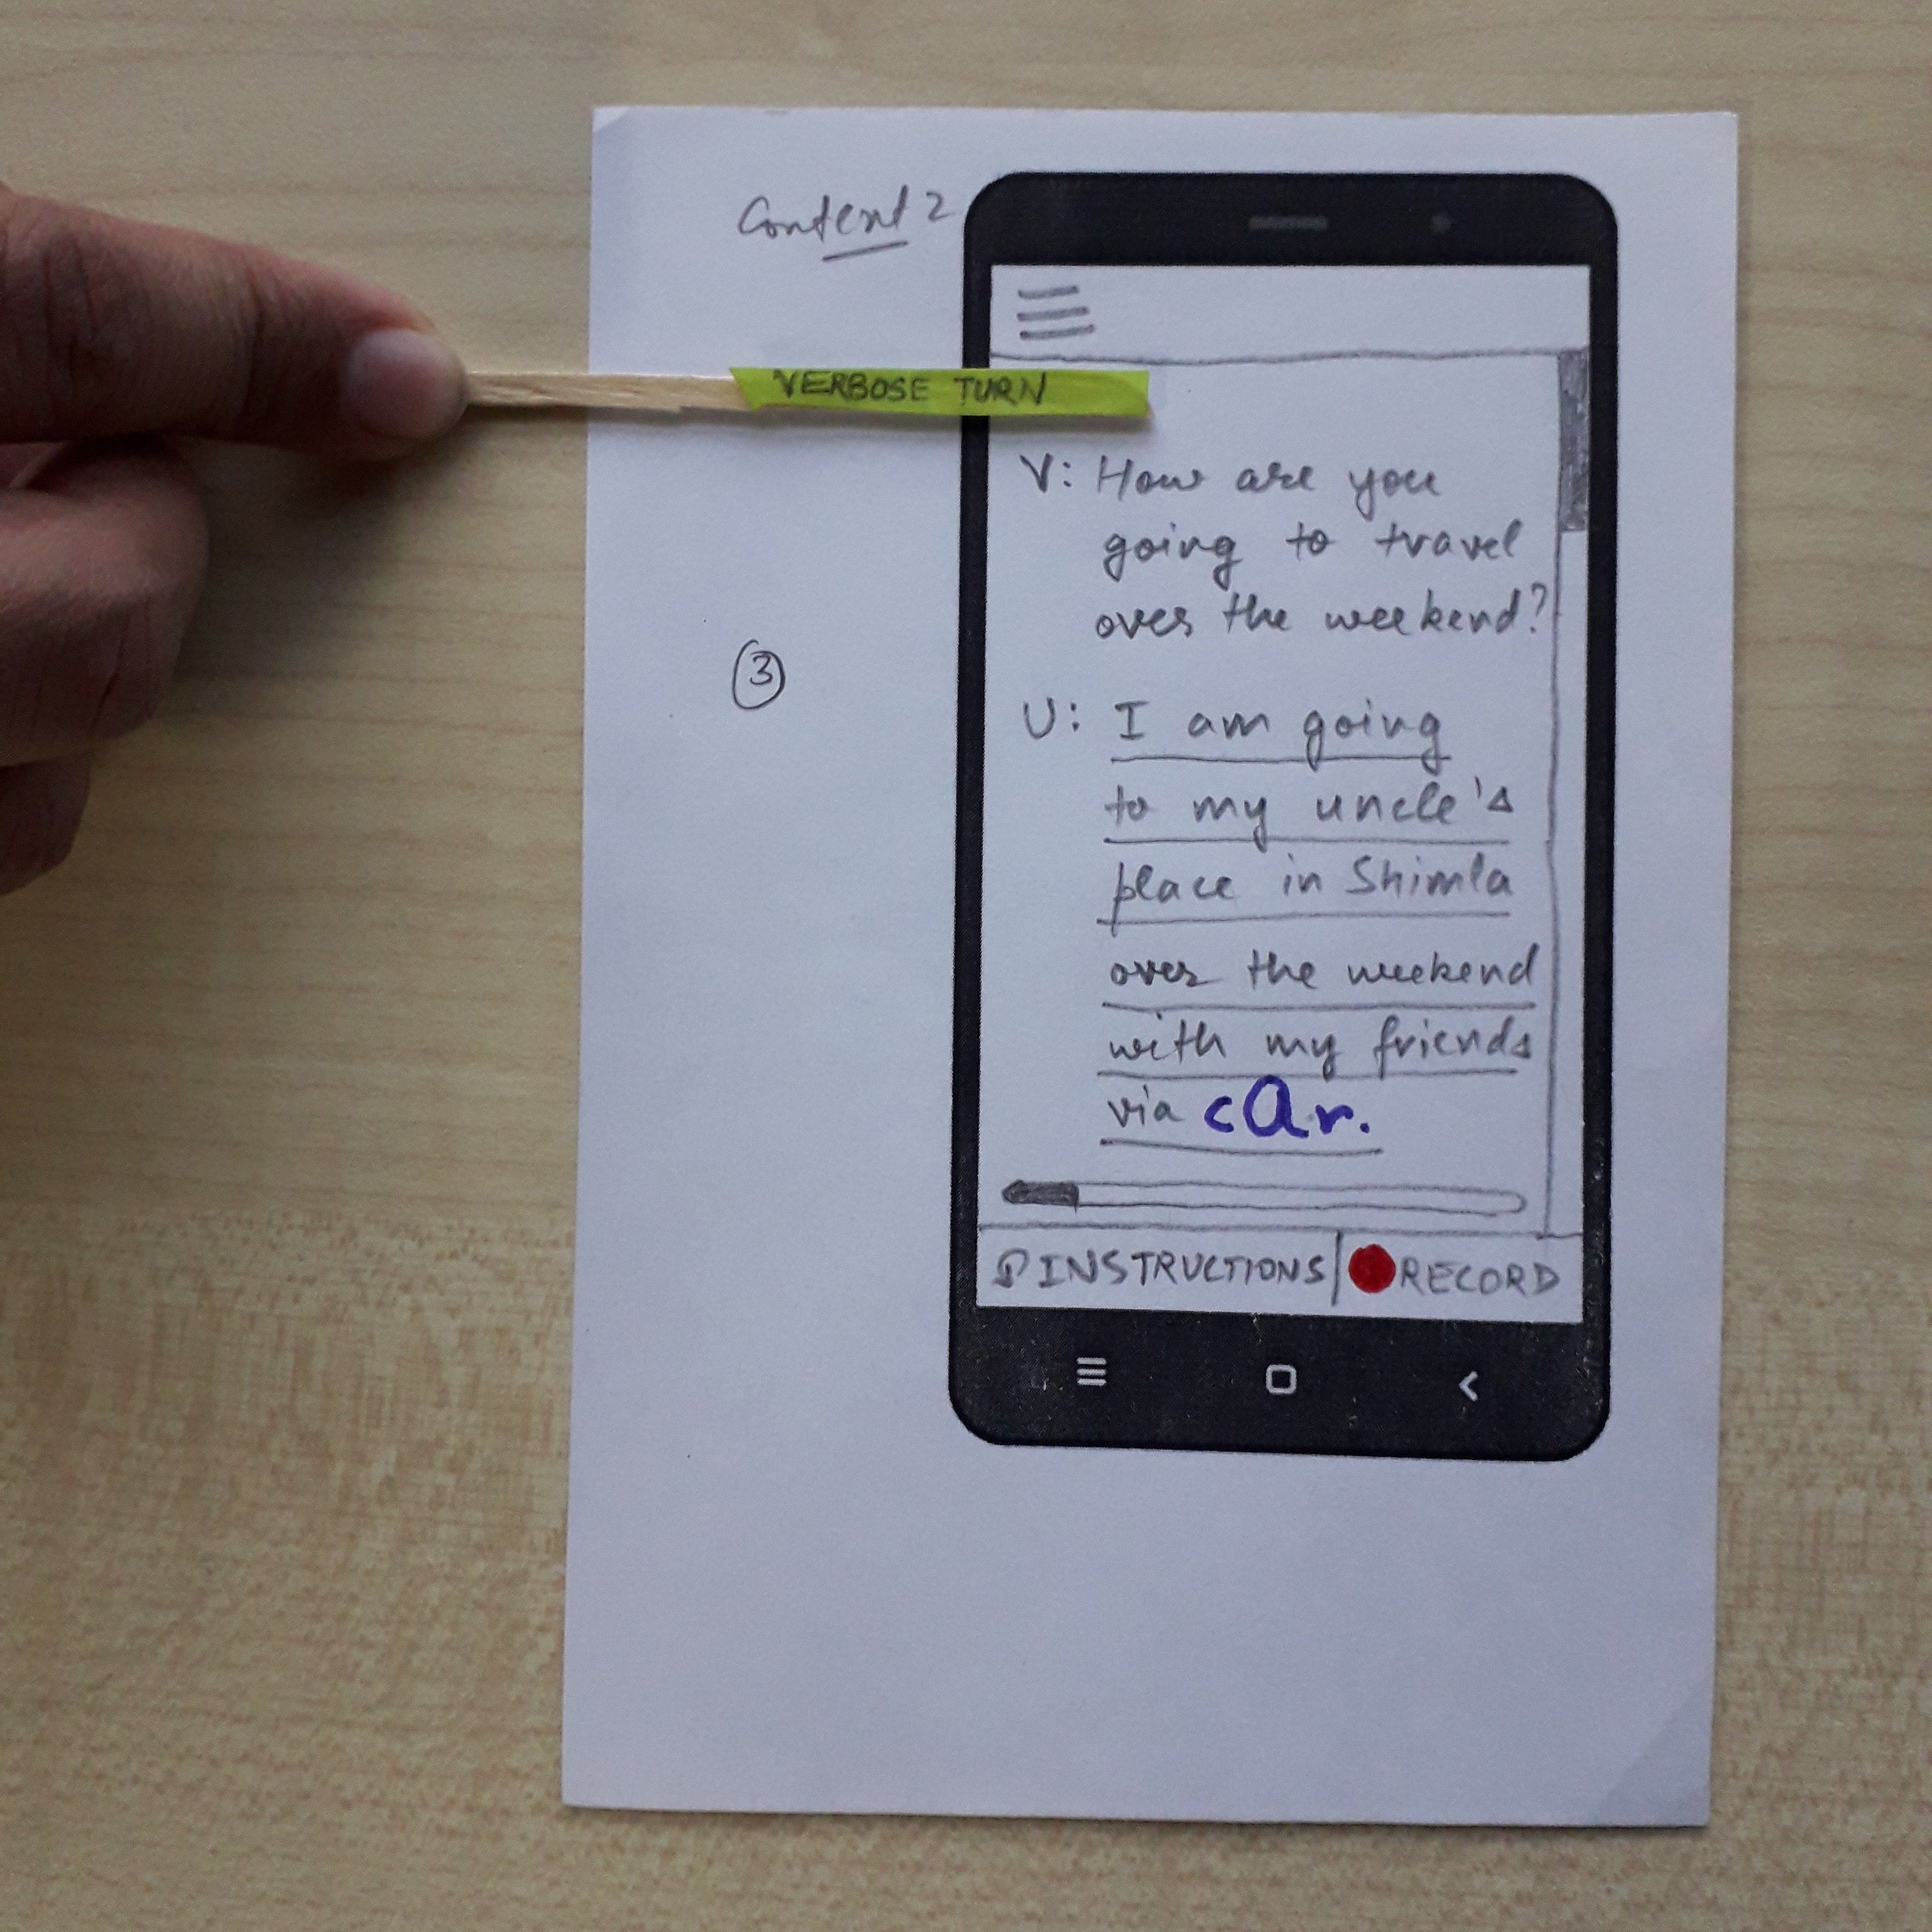 Context 2
VERBOSE TURN
V: How are you
going to travel
over the weekend?
3
U: I am going
to my uncle's
place in Shimla
over the weekend
with my friends
via cAr.
INSTRUCTIONS
RECORD